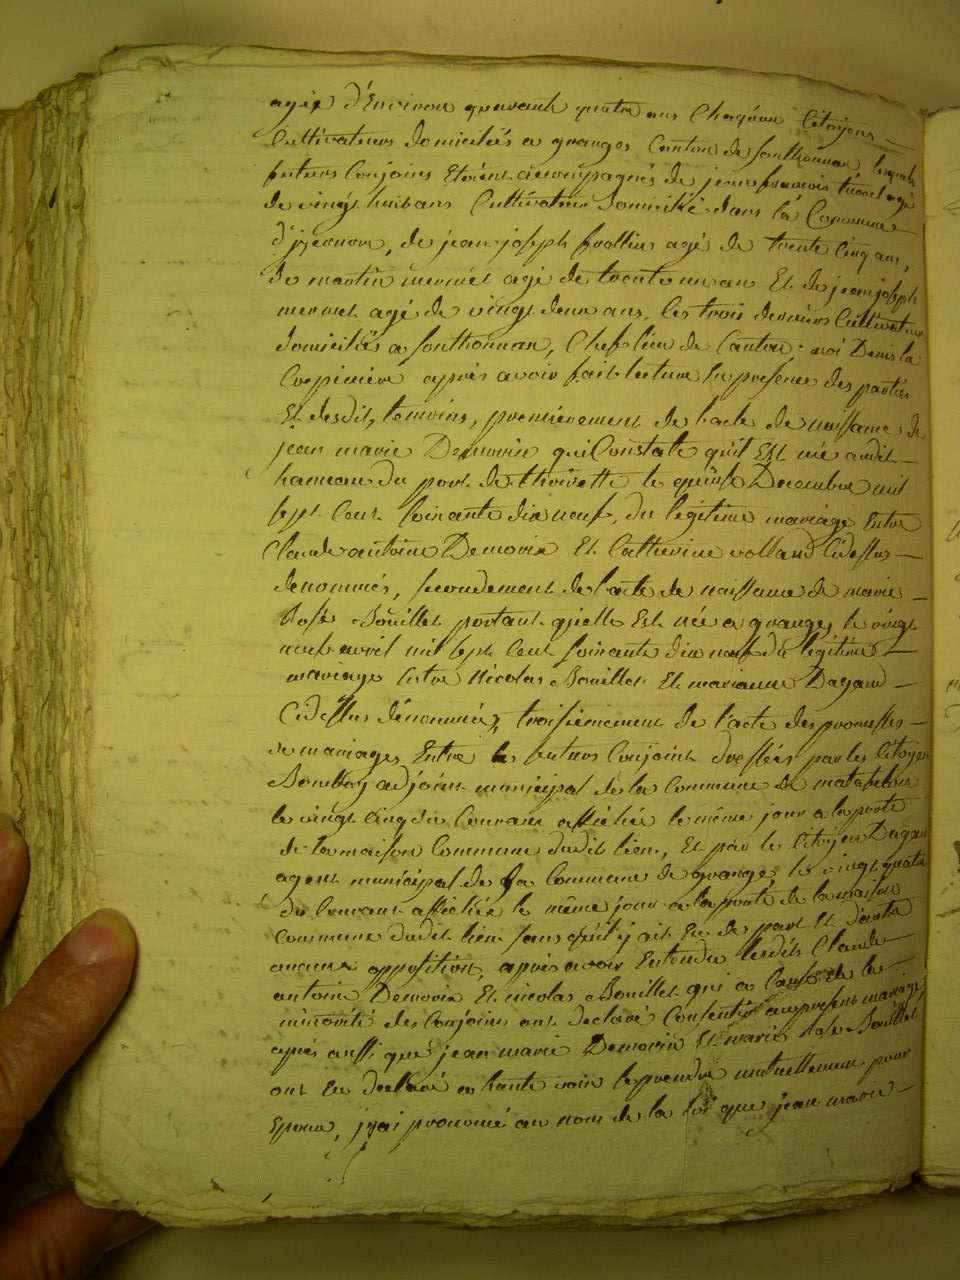 agée d'Environ quarante quatre ans Chaqu'un Citoyens
Cultivateurs domiciliés a granges Canton de sonthonnax lesquels
futurs Conjoins Etoient accompagnés de jean françois agé
de vingt huit ans Cultivateur Domicilié dans la Commune
d'izernore, de jean joseph agé de trente cinq ans,
de martin mermet agé de trente un an Et de jean joseph
mermet agé de vingt deux ans, les trois derniers Cultivateurs
domiciliés a sonthonnax, Chef lieu de Canton. moi Denis la
Crepiniere après avoir fait lecture En presence des parties
Et desdits temoins, premierement de l'acte de naissance de
jean marie Demorin qui Constate qu'il Est né audit
hameau du port de thoirette le quinze Decembre mil
sept Cent soixante dix neuf, du légitime mariage Entre
Claude antoine Demorin Et Catherine volland Cidessus
denommés, secondement de l'acte de naissance de marie
Rose Bouillet portant qu'elle Est née a granges le vingt
neuf avril mil sept Cent soixante dix neuf du légitime
mariage Entre Nicolas Bouillet Et marianne Dagand
Cidessus dénommés, troisiemement de l'acte des promesses
de mariages Entre les futurs Conjoins dressées par les Citoyens
adjoint municipal de la Commune de matafelon
le vingt cinq du Courant affichée le même jour a la porte
de la maison Commune dudit lieu, Et par le Citoyen Dagand
agent municipal de la Commune de granges le vingt quatre
du Courant affichée le même jour a la porte de la maison
Commune dudit lieu sans qu'il y ait Eu de part Et d'autre
aucune opposition, après avoir Entendu lesdits Claude
antoine Demorin Et nicolas Bouillet qui a Cause de la
minorité des Conjoins ont declaré Consentir au present mariage,
après aussi que jean marie Demorin Et marie Rose Bouillet
ont Eu declaré a haute voix se prendre mutuellement pour
Epoux, j'ai prononcé au nom de la loi que jean marie